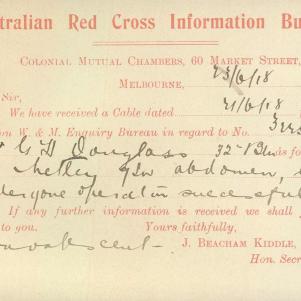 tralian Red Cross Information Bu
COLONIAL MUTUAL CHAMBERS, 60 MARKET STREET,
MELBOURNE, 23/6/18
Sir,
We have received a Cable dated 21/6/18
on W. & M. Enquiry Bureau in regard to No. 32
G H Douglass 32nd Bn as fo
Netley GSW abdomen,
dergone operation successful
If any further information is received we shall
to you. Yours faithfully,
onvalescent - J. BEACHAM KIDDLE,
Hon. Secr